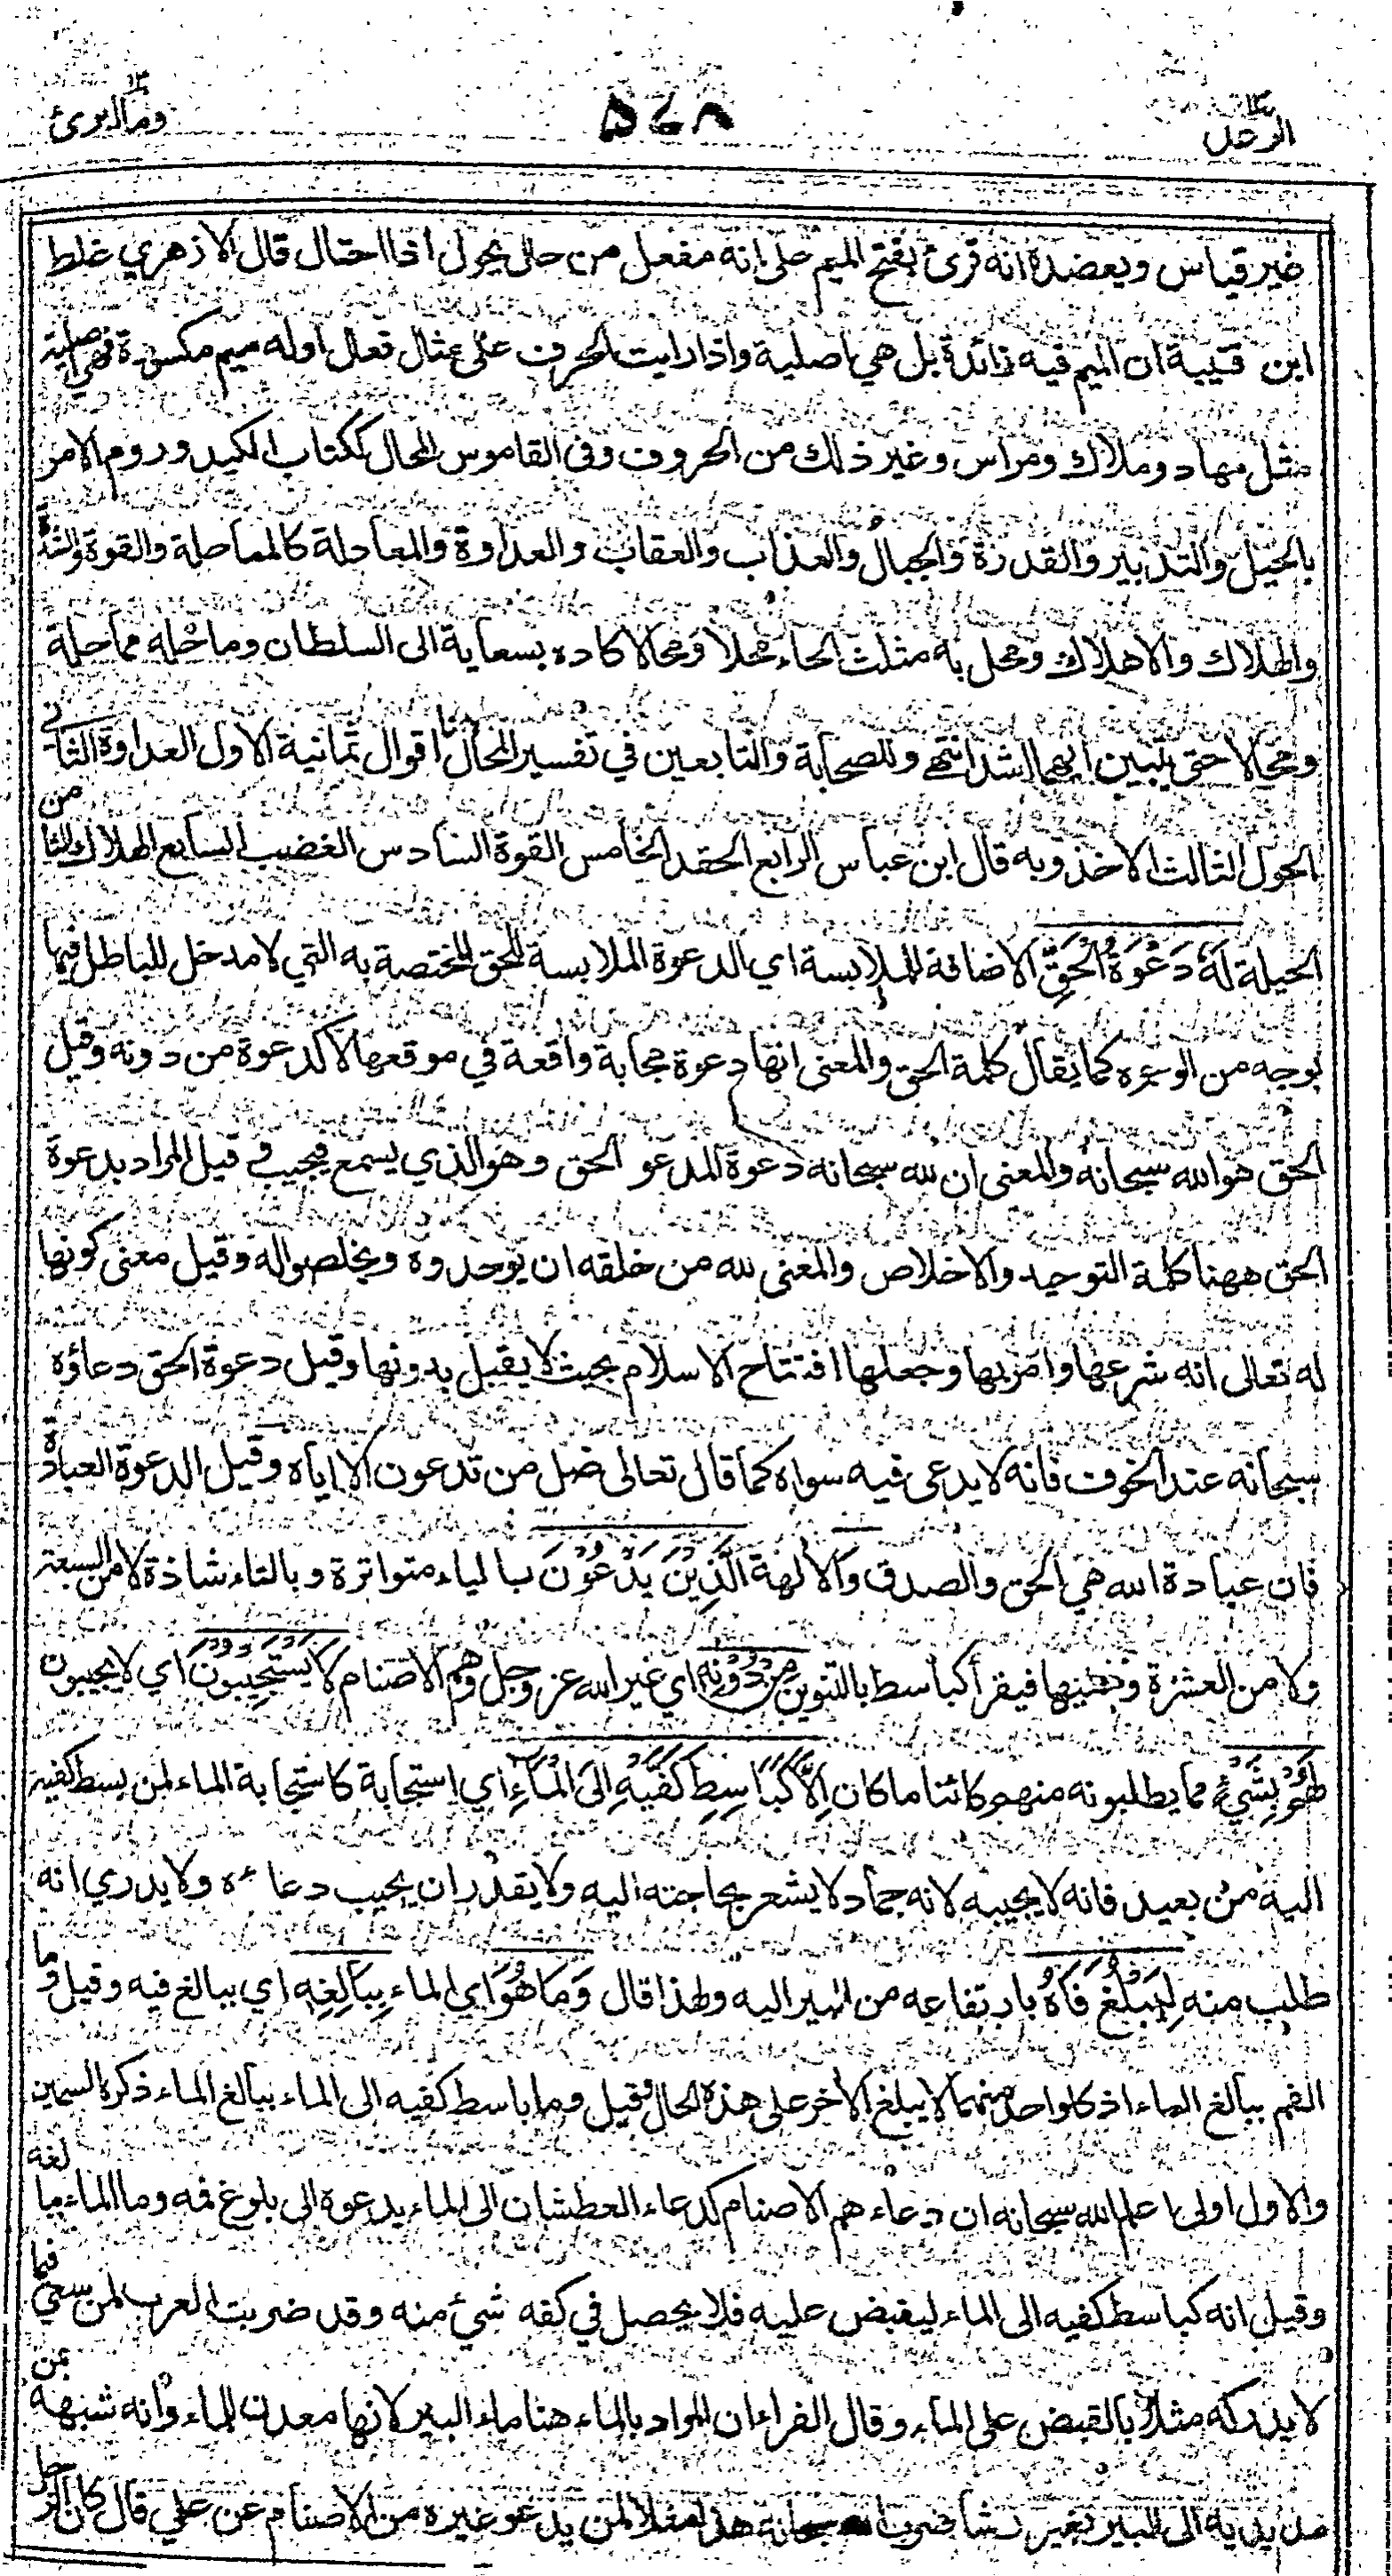 الرعد
٥٤٨
وما ابرئ ١٣
غير قياس ويعضده انه قرئ بفتح الميم على انه مفعل من حال يحول اذا احتال قال الازهري غلط
ابن قتيبة ان الميم فيه زائدة بل هي اصلية واذا رايت الحرف على مثال فعال اوله ميم مكسورة فهي اصلية
مثل مهاد وملاك ومراس وغير ذلك من الحروف وفى القاموس المحال ككتاب الكيد وروم الامر
بالحيل والتدبير والقدرة والجبال والعذاب والعقاب والعداوة والمعادلة كالمماحلة والقوة والشدة
والهلاك والاهلاك ومحل به مثلث الحاء محلا ومحالا كاده بسعاية الى السلطان وماحله مماحلة
ومحالا حتى يتبين ايهما اشد انتهى وللصحابة والتابعين في تفسير المحال اقوال ثمانية الاول العداوة الثاني
الحول الثالث الاخذ وبه قال ابن عباس الرابع الحقد الخامس القوة السادس الغضب السابع الهلاك الثامن
الحيلة لَهُ دَعْوَةُ الْحَقِّ الاضافة للملابسة اي الدعوة الملابسة للحق المختصة به التي لا مدخل للباطل فيها
بوجه من الوجوه كما يقال كلمة الحق والمعنى انها دعوة مجابة واقعة في موقعها لا كدعوة من دونه وقيل
الحق هو الله سبحانه والمعنى ان لله سبحانه دعوة المدعو الحق وهو الذي يسمع فيجيب وقيل المراد بدعوة
الحق ههنا كلمة التوحيد والاخلاص والمعنى لله من خلقه ان يوحدوه ويخلصوا له وقيل معنى كونها
له تعالى انه شرعها وامر بها وجعلها افتتاح الاسلام بحيث لا يقبل بدونها وقيل دعوة الحق دعاؤه
سبحانه عند الخوف فانه لا يدعى فيه سواه كما قال تعالى ضل من تدعون الا اياه وقيل الدعوة العبادة
فان عبادة الله هي الحق والصدق والالهة الَّذِيْنَ يَدْعُوْنَ بالياء متواترة وبالتاء شاذة لا من السبعة
ولا من العشرة فيقرأ كباسط بالتنوين مِنْ دُوْنِهِ اي غير الله عز وجل وهم الاصنام لَا يَسْتَجِيْبُوْنَ اي لا يجيبون
لَهُمْ بِشَيْءٍ مما يطلبونه منهم كائنا ما كان اِلَّا كَبَاسِطِ كَفَّيْهِ اِلَى الْمَاءِ اي استجابة كاستجابة الماء لمن بسط كفيه
اليه من بعيد فانه لا يجيبه لانه جماد لا يشعر بحاجته اليه ولا يقدر ان يجيب دعاءه ولا يدري انه
طلب منه لِيَبْلُغَ فَاهُ بارتفاعه من البير اليه ولهذا قال وَمَا هُوَ اي الماء بِبَالِغِهِ اي ببالغ فيه وقيل وما
الفم ببالغ الماء اذ كل واحد منهما لا يبلغ الآخر على هذه الحال وقيل وما باسط كفيه الى الماء ببالغ الماء ذكره السمين
والاول اولى اعلم الله سبحانه ان دعاءهم الاصنام كدعاء العطشان الى الماء يدعوه الى بلوغ فمه وما الماء ببالغه
وقيل انه كباسط كفيه الى الماء ليقبض عليه فلا يحصل في كفه شيئ منه وقد ضربت العرب لمن سعى فيما
لا يدركه مثلا بالقبض على الماء وقال الفراء ان المراد بالماء هنا ماء البير لانها معدن للماء وانه شبهه بمن
مد يديه الى البير بغير رشا ضرب الله سبحانه هذا مثلا لمن يدعو غيره من الاصنام عن علي قال كان الرجل